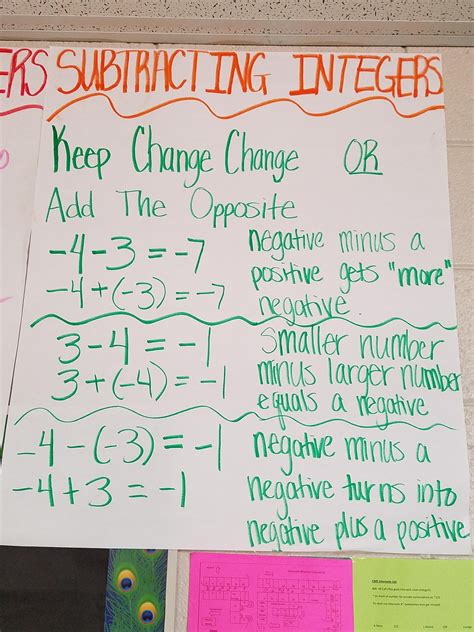 ERS SUBTRACTING INTEGERS
Keep Change Change OR
Add The Opposite
-4-3=-7
-4+(-3)=-7
negative minus a
positive gets "more"
negative.
3-4=-1
3+(-4)=-1
Smaller number
minus larger number
equals a negative
-4-(-3)=-1
-4+3=-1
negative minus a
negative turns into
negative plus a positive